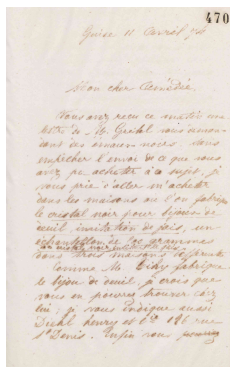 470
Guise 11 Avril 74
Mon cher Amédée
Nous avons reçu ce matin une
lettre de M. Grebel nous annon-
çant des émaux noirs. Sans
empêcher l'envoi de ce que vous
avez pu acheter à ce sujet, je
vous prie d'aller m'acheter
dans les maisons où l'on fabrique
le cristal noir pour bijoux de
deuil imitation de jais, un
échantillon de 200 grammes
de cristal noir imitation jais
dans trois maisons différentes
Comme M. fabrique
le bijou de deuil, je crois que
vous en pourrez trouver chez
lui; je vous indique aussi
Diehl henry et Cie 186 rue
St Denis. Enfin vous pourrez